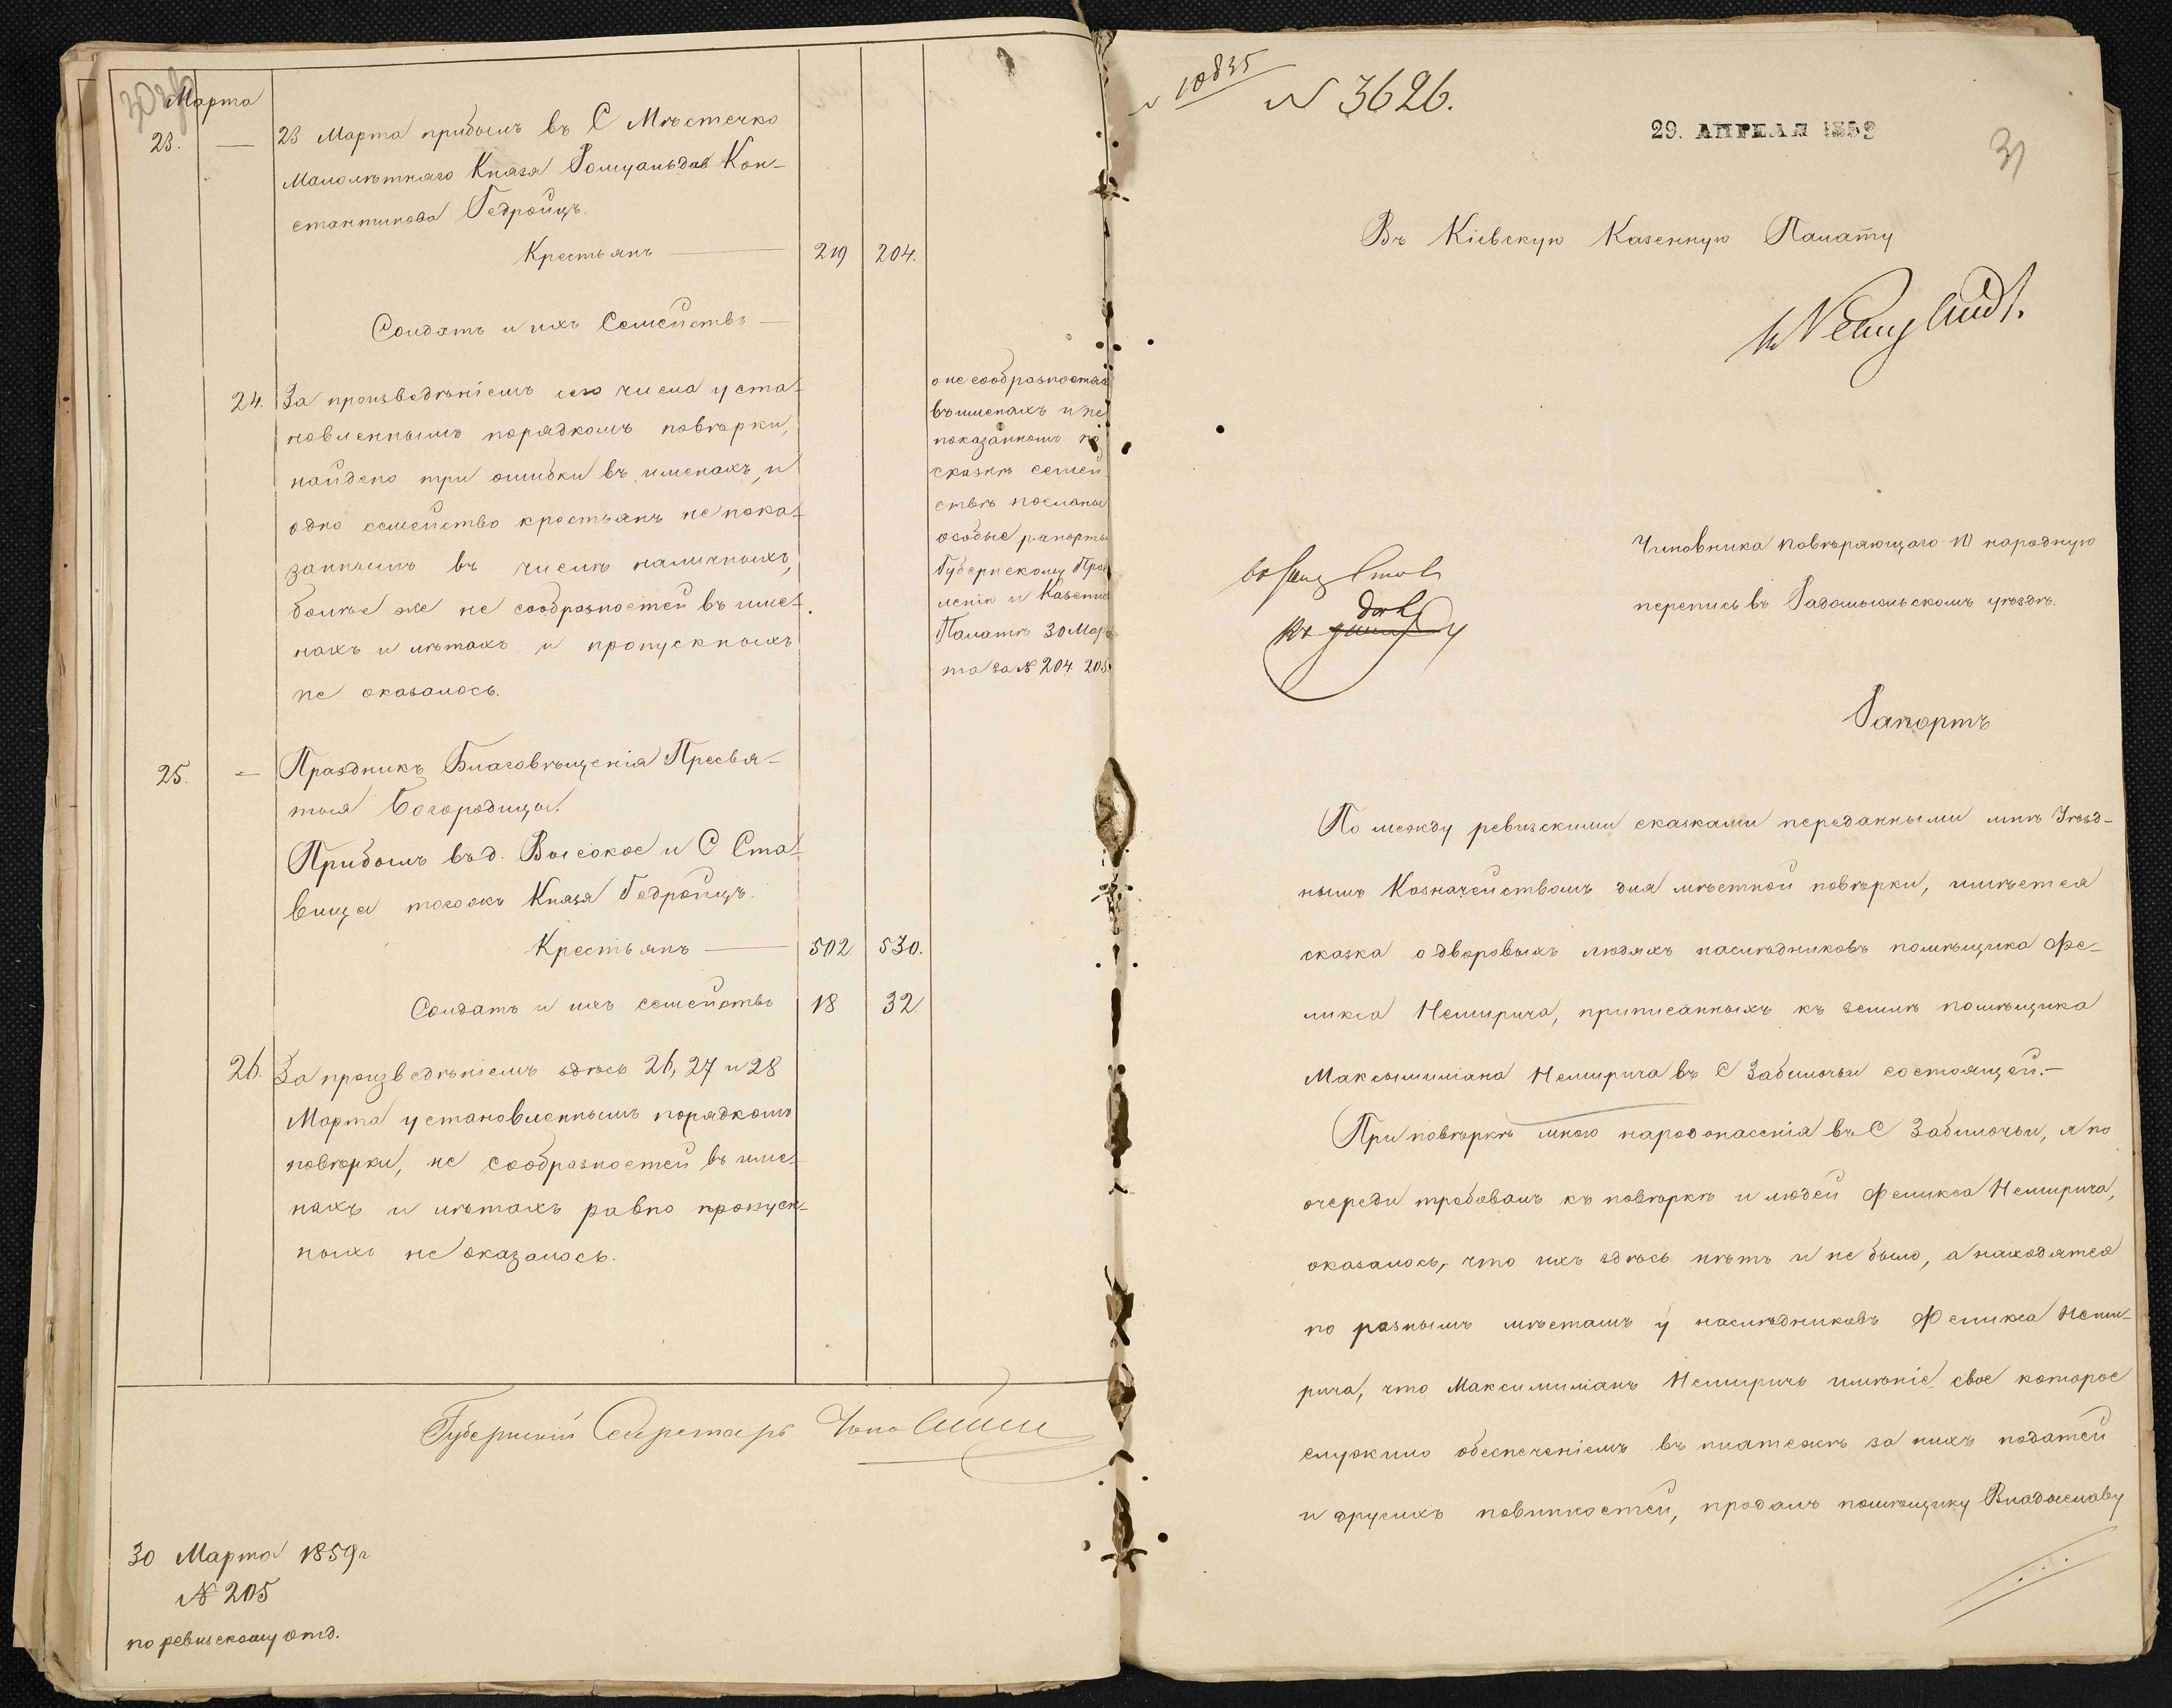 Марта
23. — 23 Марта прибылъ въ С Мѣстечко
Малолѣтняго Князя Ромуальда Кон-
стантинова Гедройцъ.
Крестьянъ — 219 204.
Солдатъ и ихъ Семействъ —
24. За произведѣніемъ сего числа уста-
новленнымъ порядкомъ повѣрки,
найдено три ошибки въ именахъ, и
одно семейство крестьянъ не пока-
заннымъ въ числѣ наличныхъ,
болѣе же не сообразностей въ име-
нахъ и лѣтахъ и пропускныхъ
не оказалось.
о не сообразностях
въ именахъ и не
показанномъ по
сказкѣ семей
ствѣ посланы
особые рапорты
Губернскому Прав
ленію и Казенной
Палатѣ 30 Мар
та за № 204. 205.
25. — Праздникъ Благовѣщенія Пресвя-
тыя Богородицы.
Прибылъ въ д. Высокое и С Ста-
вище тогожъ Князя Гедройцъ.
Крестьянъ — 502 530.
Солдатъ и ихъ семействъ 18 32.
26. За произведѣніемъ здѣсь 26, 27 и 28
Марта установленнымъ порядкомъ
повѣрки, не сообразностей въ име-
нахъ и лѣтахъ равно пропуск-
ныхъ не оказалось.
Губернскій Секретарь
30 Марта 1859 г
№ 205
по ревизскому отд.
№ 10835
№ 3626.
29. АПРЕЛЯ 1859
31
Въ Кіевскую Казенную Палату
Чиновника повѣряющаго 10 народную
перепись въ Радомысльскомъ уѣздѣ.
Рапортъ
По между ревизскими сказками переданными мнѣ Уѣзд-
нымъ Казначействомъ для мѣстной повѣрки, имѣется
сказка о дворовыхъ людяхъ наслѣдниковъ помѣщика Фе-
ликса Немирича, приписанныхъ къ землѣ помѣщика
Максымиліана Немирича въ С Забилочьи состоящей. —
При повѣркѣ мною народонаселнія въ С Забилочьи, я по
очереди требовалъ къ повѣркѣ и людей Феликса Немирича,
оказалось, что ихъ здѣсь нѣтъ и не было, а находятся
по разнымъ мѣстамъ у наслѣдниковъ Феликса Неми-
рича, что Максимиліанъ Немиричъ имѣніе свое которое
служило обеспеченіемъ въ платежѣ за нихъ податей
и другихъ повинностей, продалъ помѣщику Владыславу